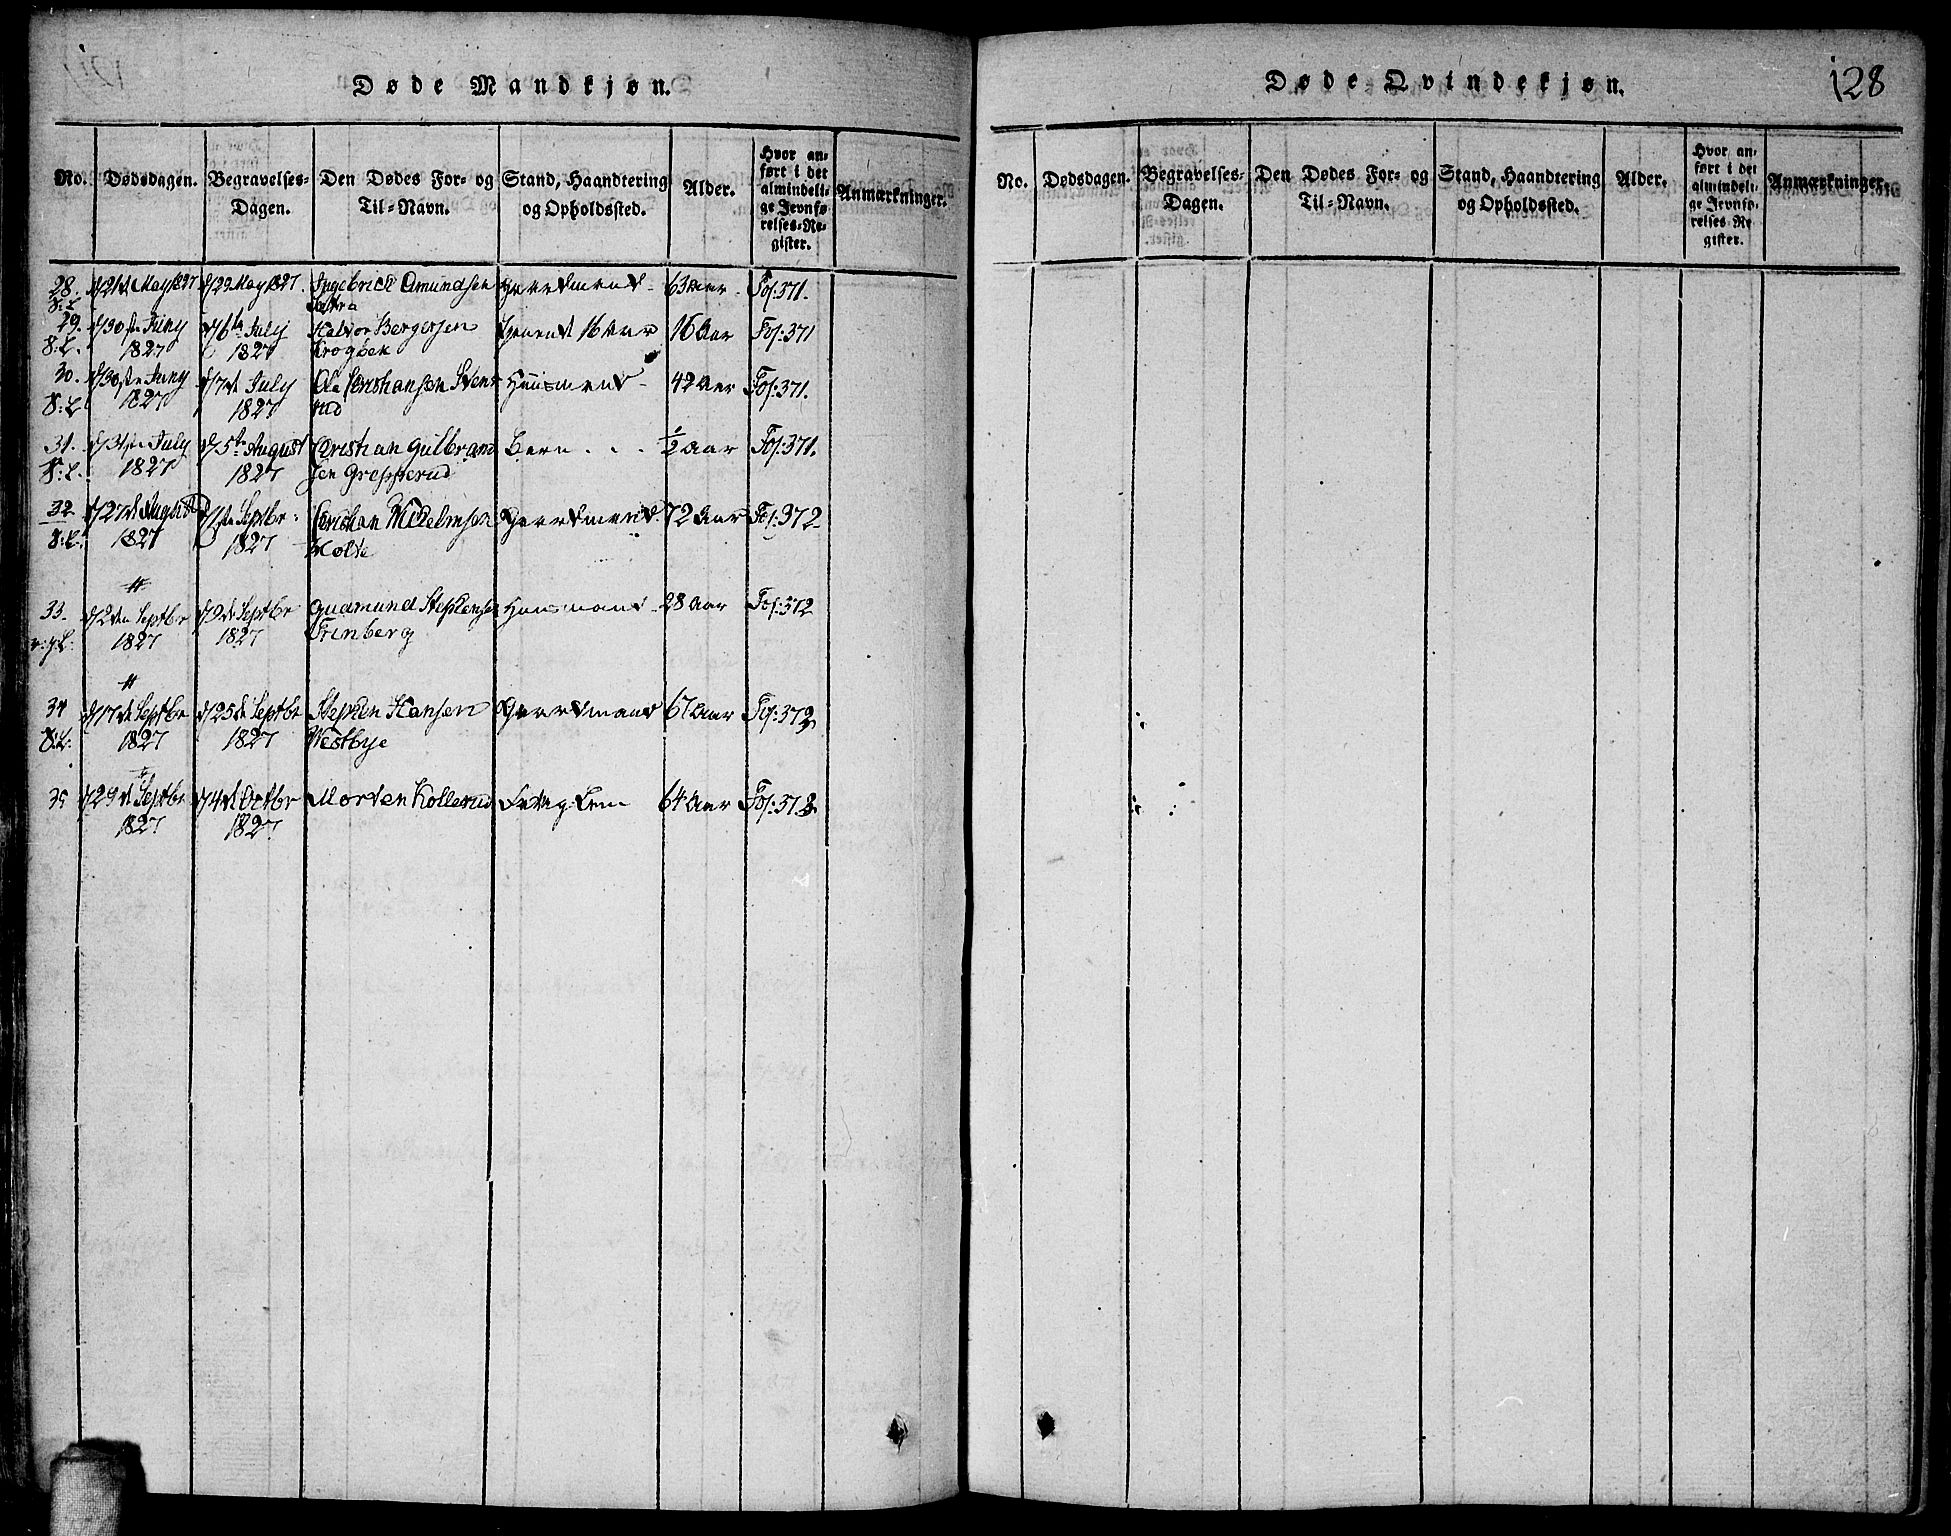 Døde Mandkjøn.
No. Dødsdagen. Begravelses-Dagen. Den Dødes For- og Til-Navn. Stand, Haandtering og Opholdssted. Alder. Hvor anført i det almindelige Jevnførelses-Register. Anmærkninger.
28. 21de May 1827 29 May 1827. Ingebrick Amundsen Gaardmand 63 Aar. Fol: 371.
29. 30te Juny 1827 6te July 1827 Halvor Bergersen Krogbek 16 Aar 16 Aar Fol: 371
30. 30te Juny 1827 7de July 1827 Ole Christiansen Huusmand 42 Aar Fol: 371.
31. 31te July 1827 5te August 1827 Christian Gulbrandsen Grepperud Barn 1/2 Aar Fol: 371.
32 27de August 1827 1ste Septbr: 1827 Christian Wilhelmsen Holte Gaardmand 72 Aar Fol: 372
33. 2den Septbr 1827 9de Septbr 1827 Gudmund Stephensen Trinberg Huusmand 28 Aar Fol: 372
34 17de Septbr 1827 25de Septbr 1827 Stephen Hansen Westbye Gaardmand 67 Aar Fol: 372
35 29de Septbr 1827 4de Octbr 1827 Morten Kollerud 64 Aar Fol: 372
Døde Qvindekjøn.
128
No. Dødsdagen. Begravelses-Dagen. Den Dødes For- og Til-Navn. Stand, Haandtering og Opholdssted. Alder. Hvor anført i det almindelige Jevnførelses-Register. Anmærkninger.